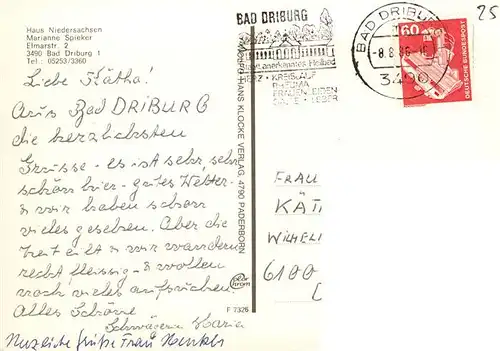 Haus Niedersachsen
Marianne Spieker
Elmarstr. 2
3490 Bad Driburg 1
Tel.: 05253/3360
Liebe Kätha!
Aus Bad DRIBURG
die herzlichsten
Grüsse - es ist sehr, sehr
schön hier - gutes Wetter -
& wir haben schon
vieles gesehen. Aber die
Zeit eilt & wir wandern
recht fleissig - & wollen
noch vieles aufsuchen!
Alles Schöne
Schwägerin Maria
Herzliche Grüße Frau
FOTO HANS KLOCKE VERLAG, 4790 PADERBORN
F 7326
BAD DRIBURG
Staatl. anerkanntes Heilbad
HERZ · KREISLAUF
RHEUMA
FRAUENLEIDEN
GALLE · LEBER
BAD DRIBURG
-8.8.86-18
3490
60
DEUTSCHE BUNDESPOST
25
FRAU
KÄT
WILHEL
6100